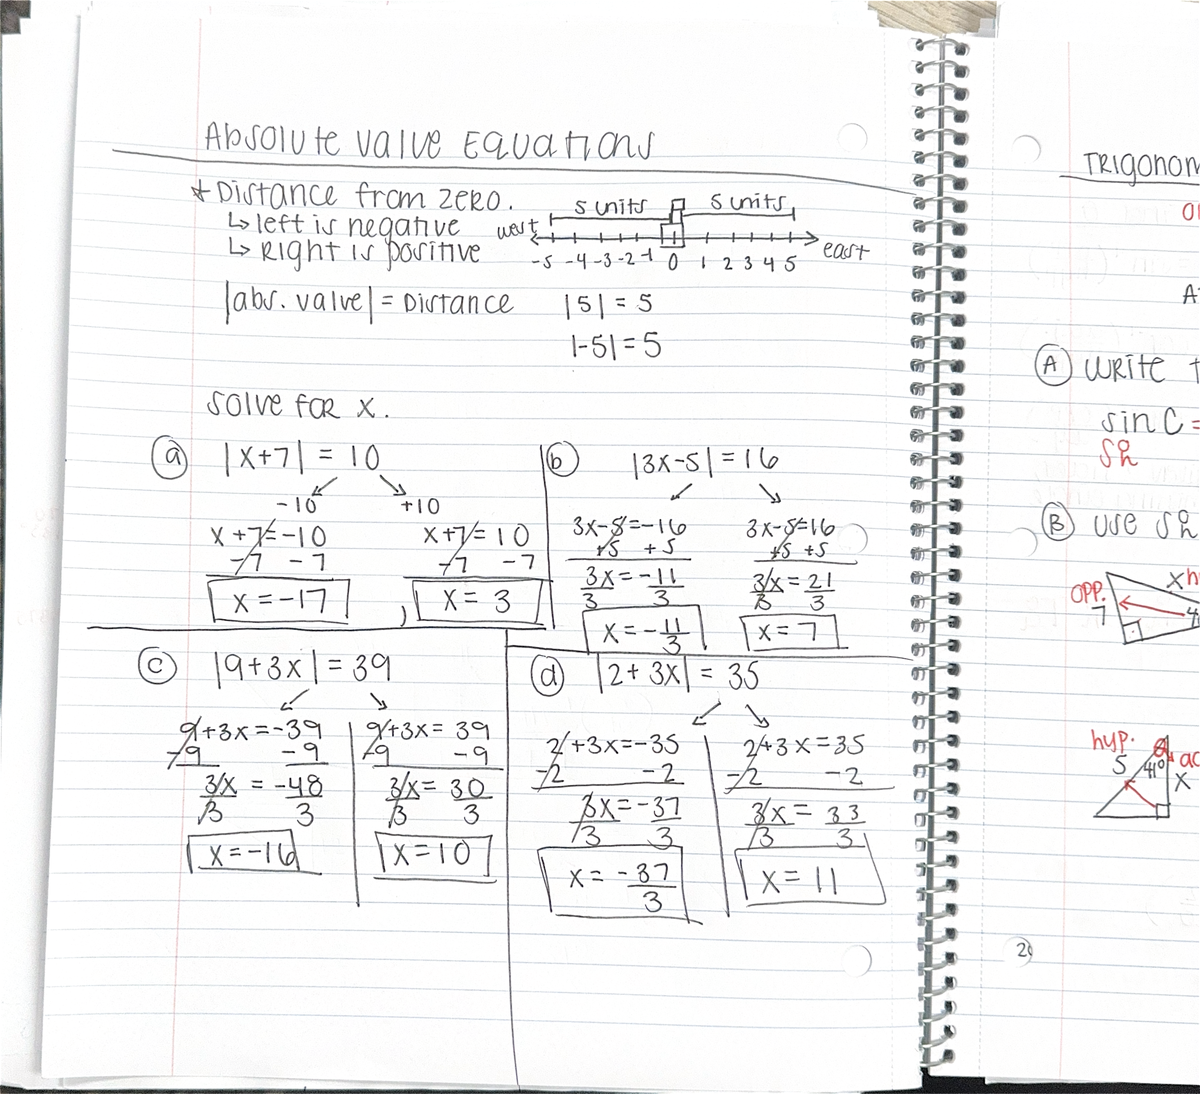 Absolute Value Equations
* Distance from zero.
↳ left is negative
↳ Right is positive
5 units 5 units
west east
-5 -4 -3 -2 -1 0 1 2 3 4 5
|abs. value| = Distance |5| = 5
|-5| = 5
Solve for x.
(a) |x+7| = 10
-10 +10
x+7=-10 x+7=10
-7 -7 -7 -7
x=-17 , x=3
(b) |3x-5|=16
3x-5=-16 3x-5=16
+5 +5 +5 +5
3x=-11 3x=21
3 3 3 3
x=-11/3 x=7
(c) |9+3x|=39
9+3x=-39 9+3x=39
-9 -9 -9 -9
3x=-48 3x=30
3 3 3 3
x=-16 x=10
(d) |2+3x|=35
2+3x=-35 2+3x=35
-2 -2 -2 -2
3x=-37 3x=33
3 3 3 3
x=-37/3 x=11
Trigonom
A
(A) Write
sin C=
(B) Use
opp. x
7
hyp.
5 41°
x